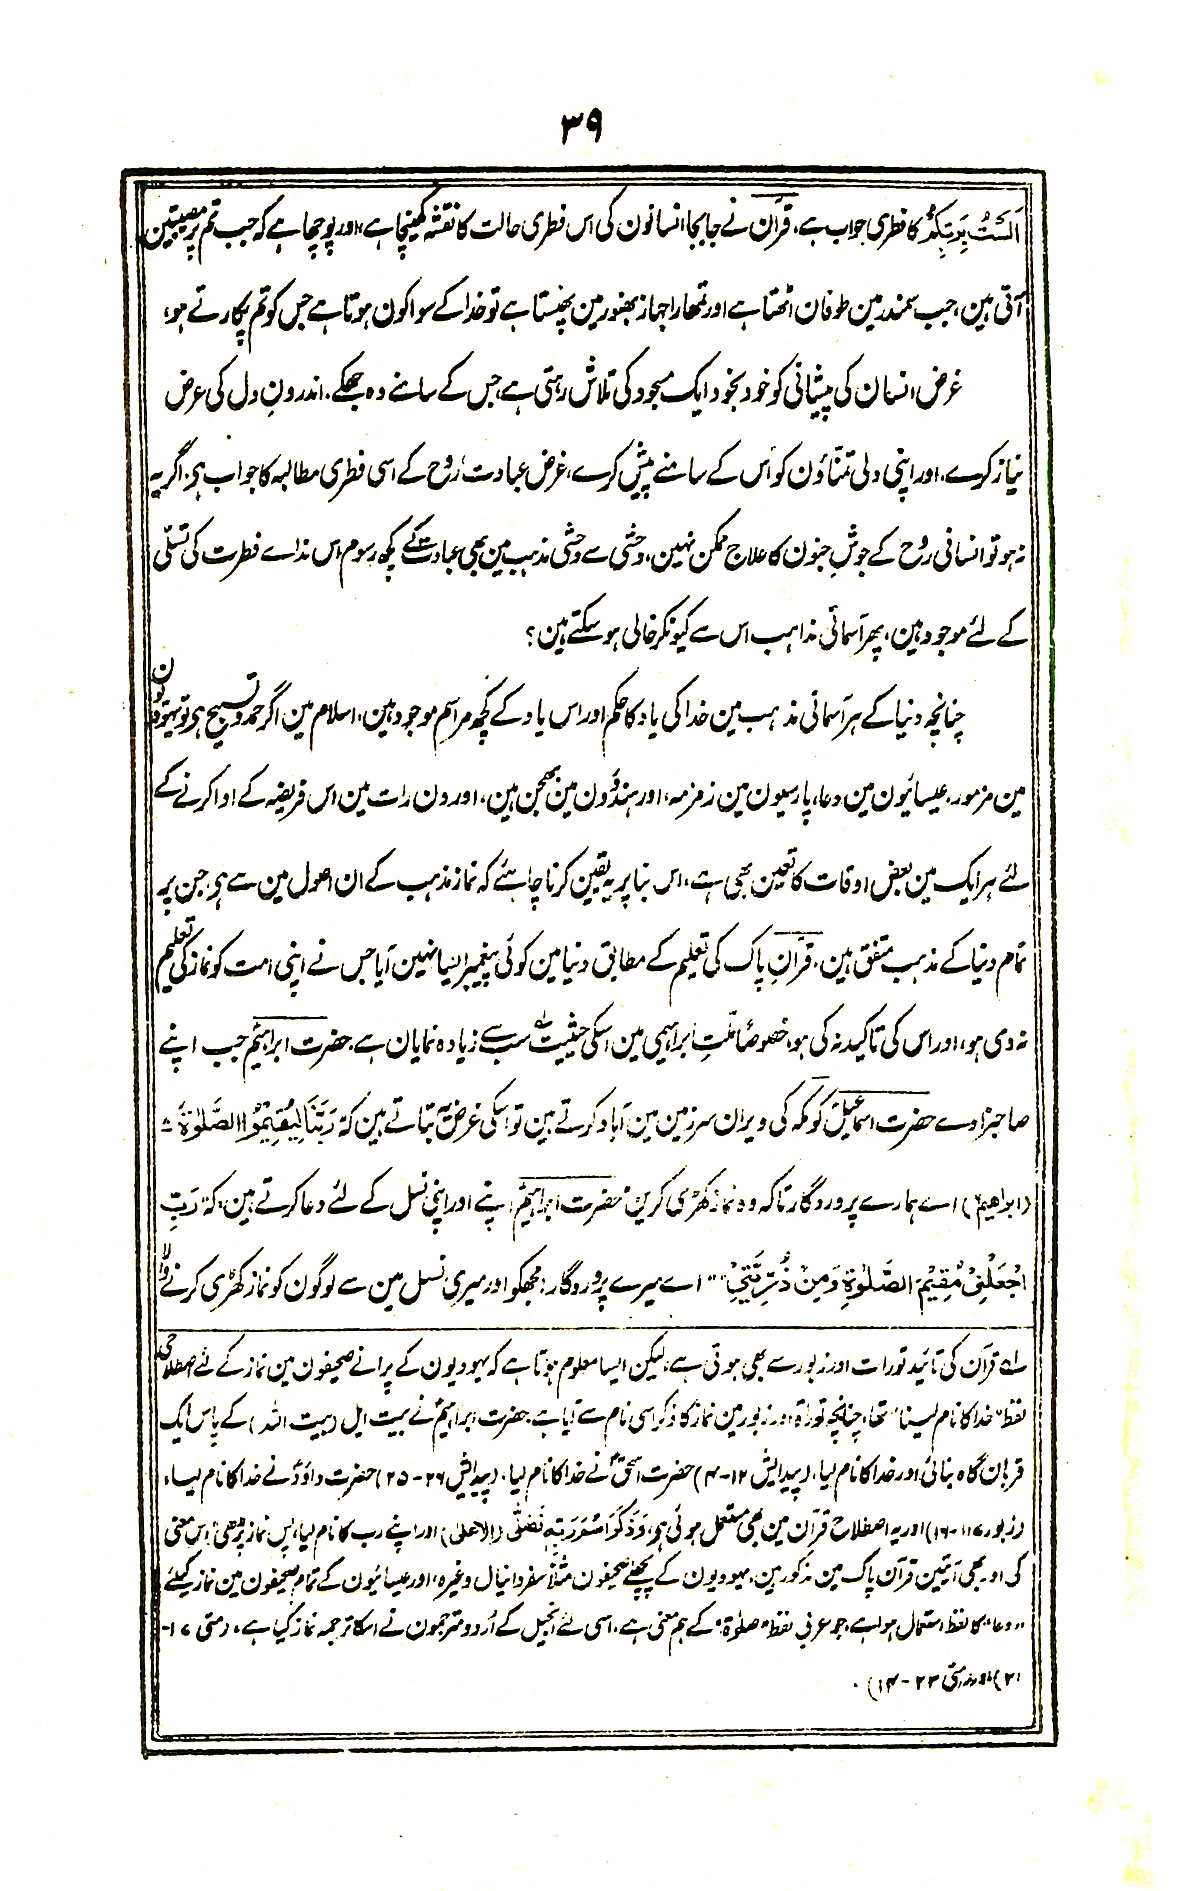 ۳۹
اَلَسْتُ بِرَبِّكُمْ کا فطری جواب ہے، قرآن نے جابجا انسانون کی اس فطری حالت کا نقشہ کھینچا ہے، اور پوچھا ہے کہ جب تم پر مصیبتین
آتی ہین، جب سمندر مین طوفان اٹھتا ہے اور تمھارا جہاز بھنور مین پھنستا ہے تو خدا کے سوا کون ہوتا ہے جس کو تم پکارتے ہو،
غرض انسان کی پیشانی کو خود بخود ایک مسجود کی تلاش رہتی ہے، جس کے سامنے وہ جھکے، اندرونِ دل کی عرض
نیاز کرے، اور اپنی دلی تمناؤن کو اُس کے سامنے پیش کرے، غرض عبادت رُوح کے اسی فطری مطالبہ کا جواب ہی، اگر یہ
نہ ہو تو انسانی رُوح کے جوشِ جنون کا علاج ممکن نہین، وحشی سے وحشی مذہب مین بھی عبادت کے کچھ رسوم اس نداے فطرت کی تسلّی
کے لئے موجود ہین، پھر آسمانی مذاہب اس سے کیونکر خالی ہو سکتے ہین؟
چنانچہ دنیا کے ہر آسمانی مذہب مین خدا کی یاد کا حکم اور اس یاد کے کچھ مراسم موجود ہین، اسلام مین اگر حمد و تسبیح ہی تو یہودیون
مین مزمور، عیسائیون مین دعا، پارسیون مین زمزمہ، اور ہندؤون مین بھجن ہین، اور دن رات مین اس فریضہ کے ادا کرنے کے
لئے ہر ایک مین بعض اوقات کا تعین بھی ہے، اس بنا پر یہ یقین کرنا چاہئے کہ نماز مذہب کے ان اصول مین سے ہی، جن پر
تمام دنیا کے مذہب متفق ہین، قرآنِ پاک کی تعلیم کے مطابق دنیا مین کوئی پیغمبر ایسا نہین آیا جس نے اپنی امت کو نماز کی تعلیم
نہ دی ہو، اور اس کی تاکید نہ کی ہو، خصوصًا ملّتِ ابراہیمی مین اسکی حیثیت سب سے زیادہ نمایان ہے، حضرت ابراہیمؑ جب اپنے
صاحبزادے حضرت اسماعیلؑ کو مکہ کی ویران سرزمین مین آباد کرتے ہین تو اسکی غرض یہ بتاتے ہین کہ رَبَّنَا لِيُقِيْمُوا الصَّلٰوةَ
(ابراهيم) اے ہمارے پروردگار تاکہ وہ نماز کھڑی کرین، حضرت ابراہیمؑ اپنے اور اپنی نسل کے لئے دعا کرتے ہین، کہ رَبِّ
اجْعَلْنِيْ مُقِيْمَ الصَّلٰوةِ وَمِنْ ذُرِّيَّتِيْ "اے میرے پروردگار! مجھکو اور میری نسل مین سے لوگون کو نماز کھڑی کرنے والا
لہ قرآن کی تائید تورات اور زبور سے بھی ہوتی ہے، لیکن ایسا معلوم ہوتا ہے کہ یہودیون کے پرانے صحیفون مین نماز کے لئے اصطلاحی
لفظ "خدا کا نام لینا" تھا، چنانچہ توراۃ اور زبور مین نماز کا ذکر اسی نام سے آیا ہے، حضرت ابراہیمؑ نے بیت ایل (بیت اللہ) کے پاس ایک
قربان گاہ بنائی اور خدا کا نام لیا، (پیدائش ۱۲-۴) حضرت اسحٰقؑ نے خدا کا نام لیا، (پیدائش ۲۶-۲۵) حضرت داؤدؑ نے خدا کا نام لیا،
(زبور ۱۱۶-۱۷) اور یہ اصطلاح قرآن مین بھی مستعمل ہوئی ہو، وَذَكَرَ اسْمَ رَبِّهٖ فَصَلّٰى (الاعلیٰ) اور اپنے رب کا نام لیا، پس نماز پڑھی، اس معنی
کی اور بھی آیتین قرآن پاک مین مذکور ہین، یہودیون کے پچھلے صحیفون مثلًا سفر دانیال وغیرہ، اور عیسائیون کے تمام صحیفون مین نماز کیلئے
"دعا" کا لفظ استعمال ہوا ہے، جو عربی لفظ "صلوٰۃ" کے ہم معنی ہے، اسی لئے انجیل کے اُردو مترجمون نے اسکا ترجمہ نماز کیا ہے، (متی ۱۷-
۲۱) اور (متی ۲۳-۱۴)۔